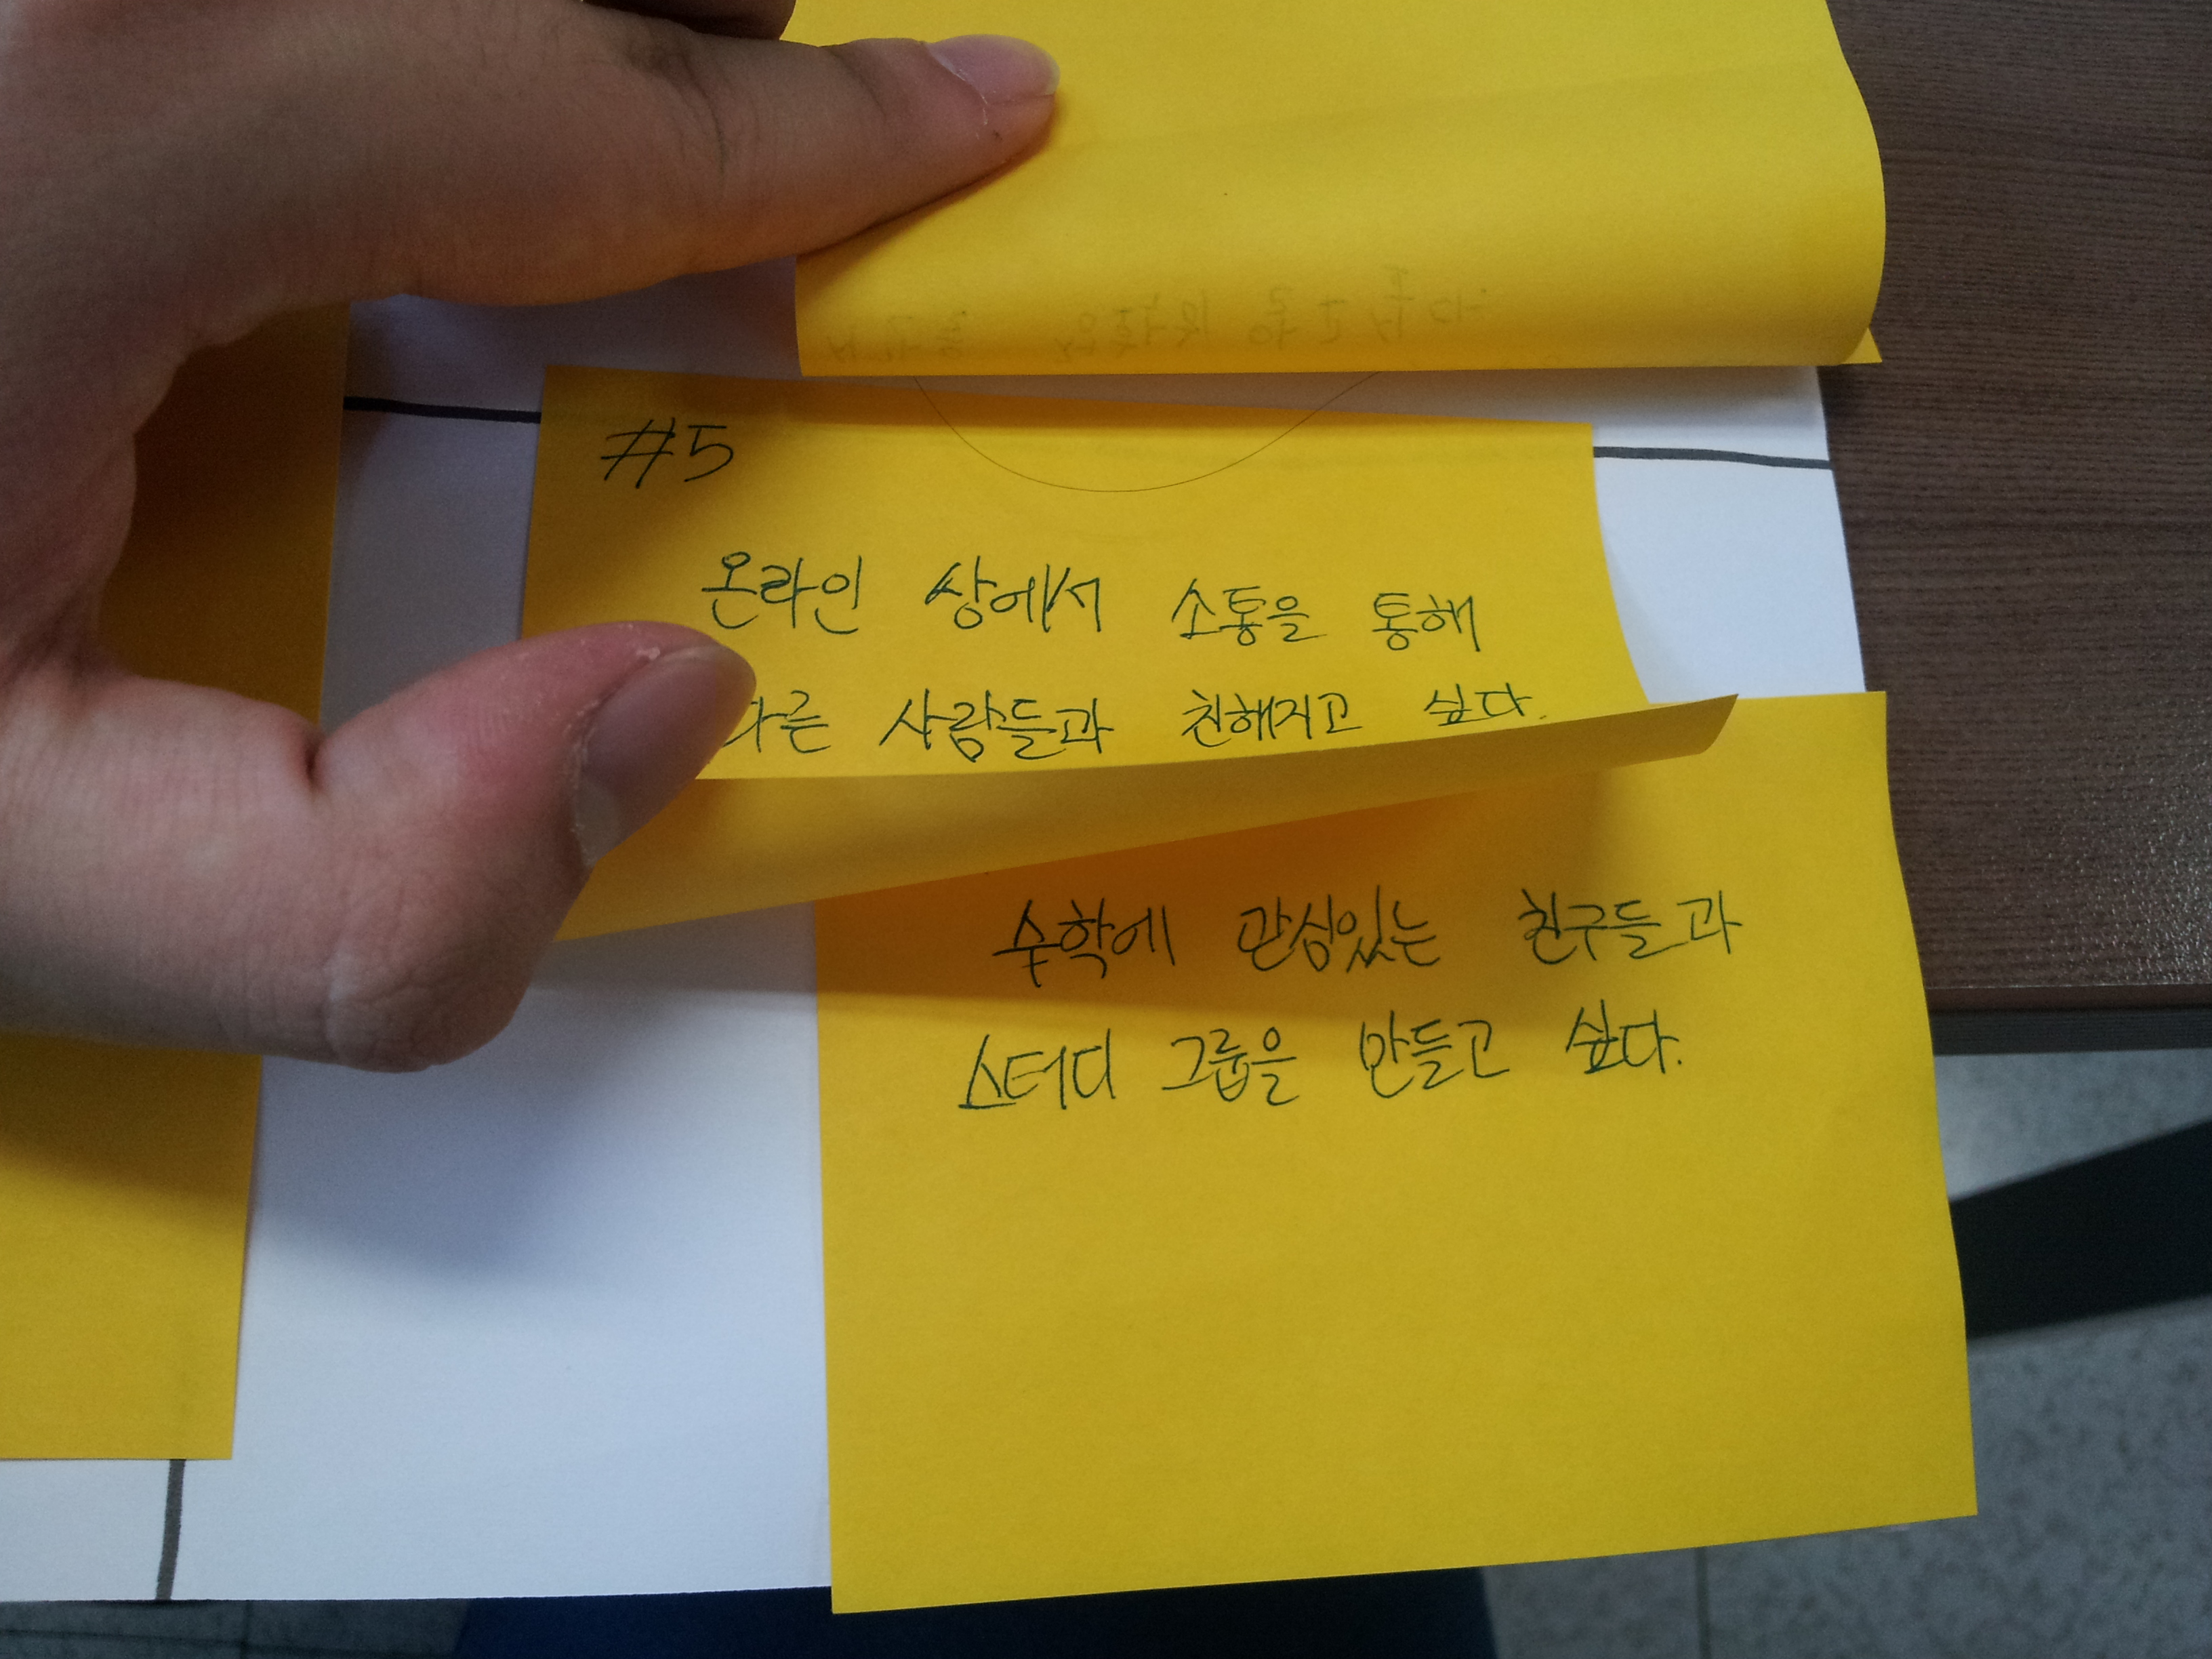 #5
온라인 상에서 소통을 통해
다른 사람들과 친해지고 싶다.
수학에 관심있는 친구들과
스터디 그룹을 만들고 싶다.